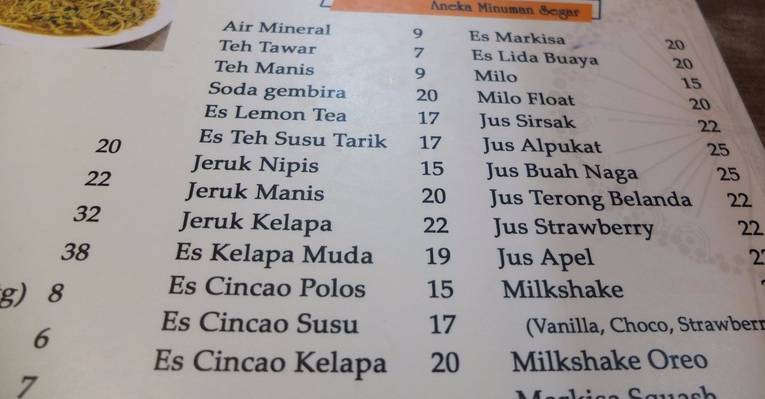 Aneka Minuman Segar
Air Mineral 9
Teh Tawar 7
Teh Manis 9
Soda gembira 20
Es Lemon Tea 17
Es Teh Susu Tarik 17
Jeruk Nipis 15
Jeruk Manis 20
Jeruk Kelapa 22
Es Kelapa Muda 19
Es Cincao Polos 15
Es Cincao Susu 17
Es Cincao Kelapa 20
Es Markisa 20
Es Lida Buaya 20
Milo 15
Milo Float 20
Jus Sirsak 22
Jus Alpukat 25
Jus Buah Naga 25
Jus Terong Belanda 22
Jus Strawberry 22
Jus Apel
Milkshake
(Vanilla, Choco, Strawberr
Milkshake Oreo
Markisa Squash
20
22
32
38
g) 8
6
7